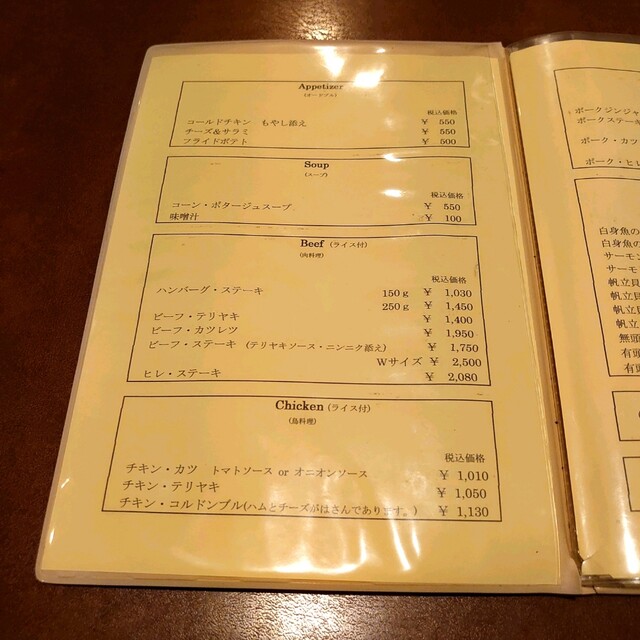 Appetizer
(オードブル)
税込価格
コールドチキン もやし添え ¥ 550
チーズ&サラミ ¥ 550
フライドポテト ¥ 500
Soup
(スープ)
税込価格
コーン・ポタージュスープ ¥ 550
味噌汁 ¥ 100
Beef (ライス付)
(肉料理)
税込価格
ハンバーグ・ステーキ 150g ¥ 1,030
250g ¥ 1,450
ビーフ・テリヤキ ¥ 1,400
ビーフ・カツレツ ¥ 1,950
ビーフ・ステーキ (テリヤキソース・ニンニク添え) ¥ 1,750
Wサイズ ¥ 2,500
ヒレ・ステーキ ¥ 2,080
Chicken (ライス付)
(鳥料理)
税込価格
チキン・カツ トマトソース or オニオンソース ¥ 1,010
チキン・テリヤキ ¥ 1,050
チキン・コルドンブル(ハムとチーズがはさんであります。) ¥ 1,130
ポークジンジャ
ポークステーキ
ポーク・カツ
ポーク・ヒレ
白身魚の
白身魚の
サーモン
サーモ
帆立貝
帆立貝
帆立
帆立
無頭
有頭
有頭